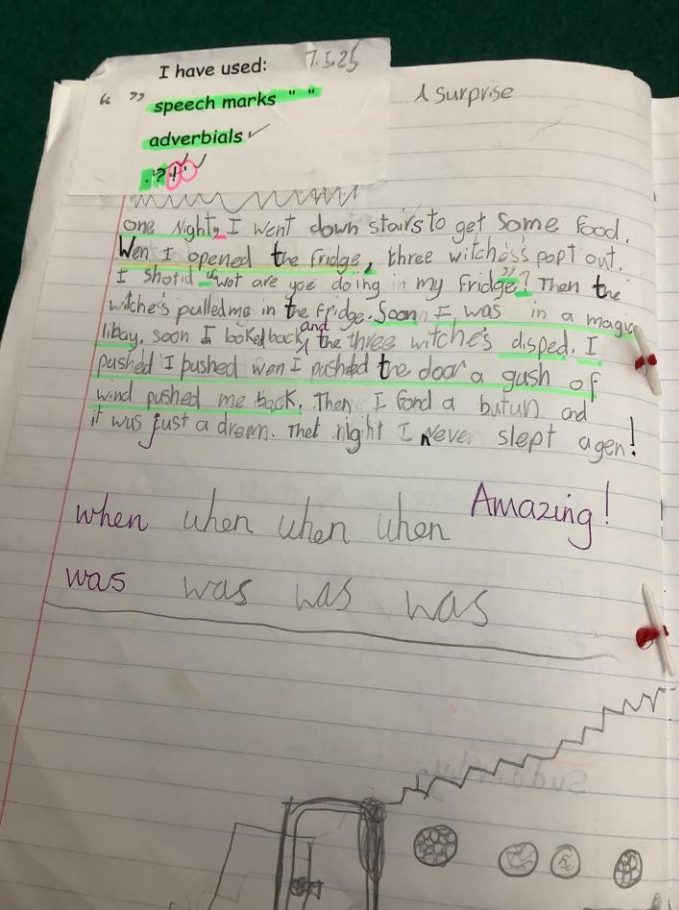 I have used:
7.5.25
“ ” speech marks “ ”
adverbials ✓
. ? !
A surprise
one night, I went down stairs to get some food.
Wen I opened the fridge, three witches's popt out.
I shotid “wot are yoe doing in my fridge”? Then the
witche's pulled me in the fridge. Soon I was in a magic
libay. soon I looked back and the three witche's disped. I
pushed I pushed wen I pushed the door a gush of
wind pushed me back. Then I fond a butun and
it wus just a drem. Thet night I Never slept agen!
when when when when
Amazing!
was was was was